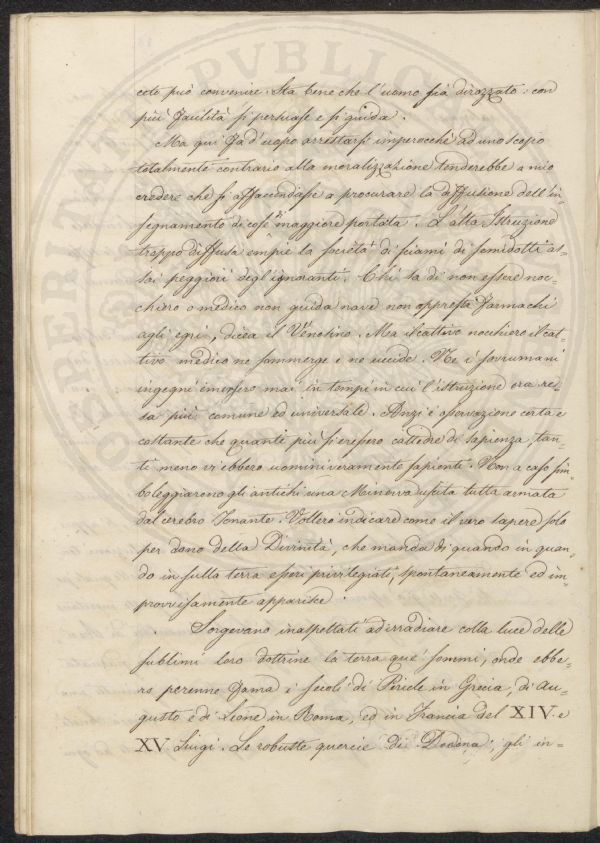 cete può convenire. Sta bene che l'uomo sia dirozzato: con
più facilità si persuase e si guida.
Ma qui fa d'uopo arrestarsi imperocchè ad uno scopo
totalmente contrario alla moralizzazione tenderebbe a mio
credere che si affaccendasse a procurare la diffusione dell'in=
segnamento di cose di maggiore portata. L'alta Istruzione
troppo diffusa empie la società di sciami di semidotti as=
sai peggiori degl'ignoranti. Chi sa di non essere noc=
chiero o medico non guida nave non appresta farmachi
agli egri, dicea il Venosino. Ma il cattivo nocchiero il cat=
tivo medico ne sommerge e ne uccide. Ne i sovrumani
ingegni emersero mai in tempi in cui l'istruzione era re=
sa più comune ed universale. Anzi è osservazione certa e
costante che quanti più si eressero cattedre di sapienza, tan=
ti meno vi ebbero uomini veramente sapienti. Non a caso sim=
boleggiarono gli antichi una Minerva uscita tutta armata
dal cerebro Tonante. Vollero indicare come il vero sapere solo
per dono della Divinità, che manda di quando in quan=
do in sulla terra esseri privilegiati, spontaneamente ed im=
provvisamente apparisce.
Sorgevano inaspettati ad irradiare colla luce delle
sublimi loro dottrine la terra que' sommi, onde ebbe=
ro perenne fama i secoli di Pericle in Grecia, di Au=
gusto e di Leone in Roma, ed in Francia del XIV. e
XV Luigi. Le robuste quercie di Dodona, gli in=